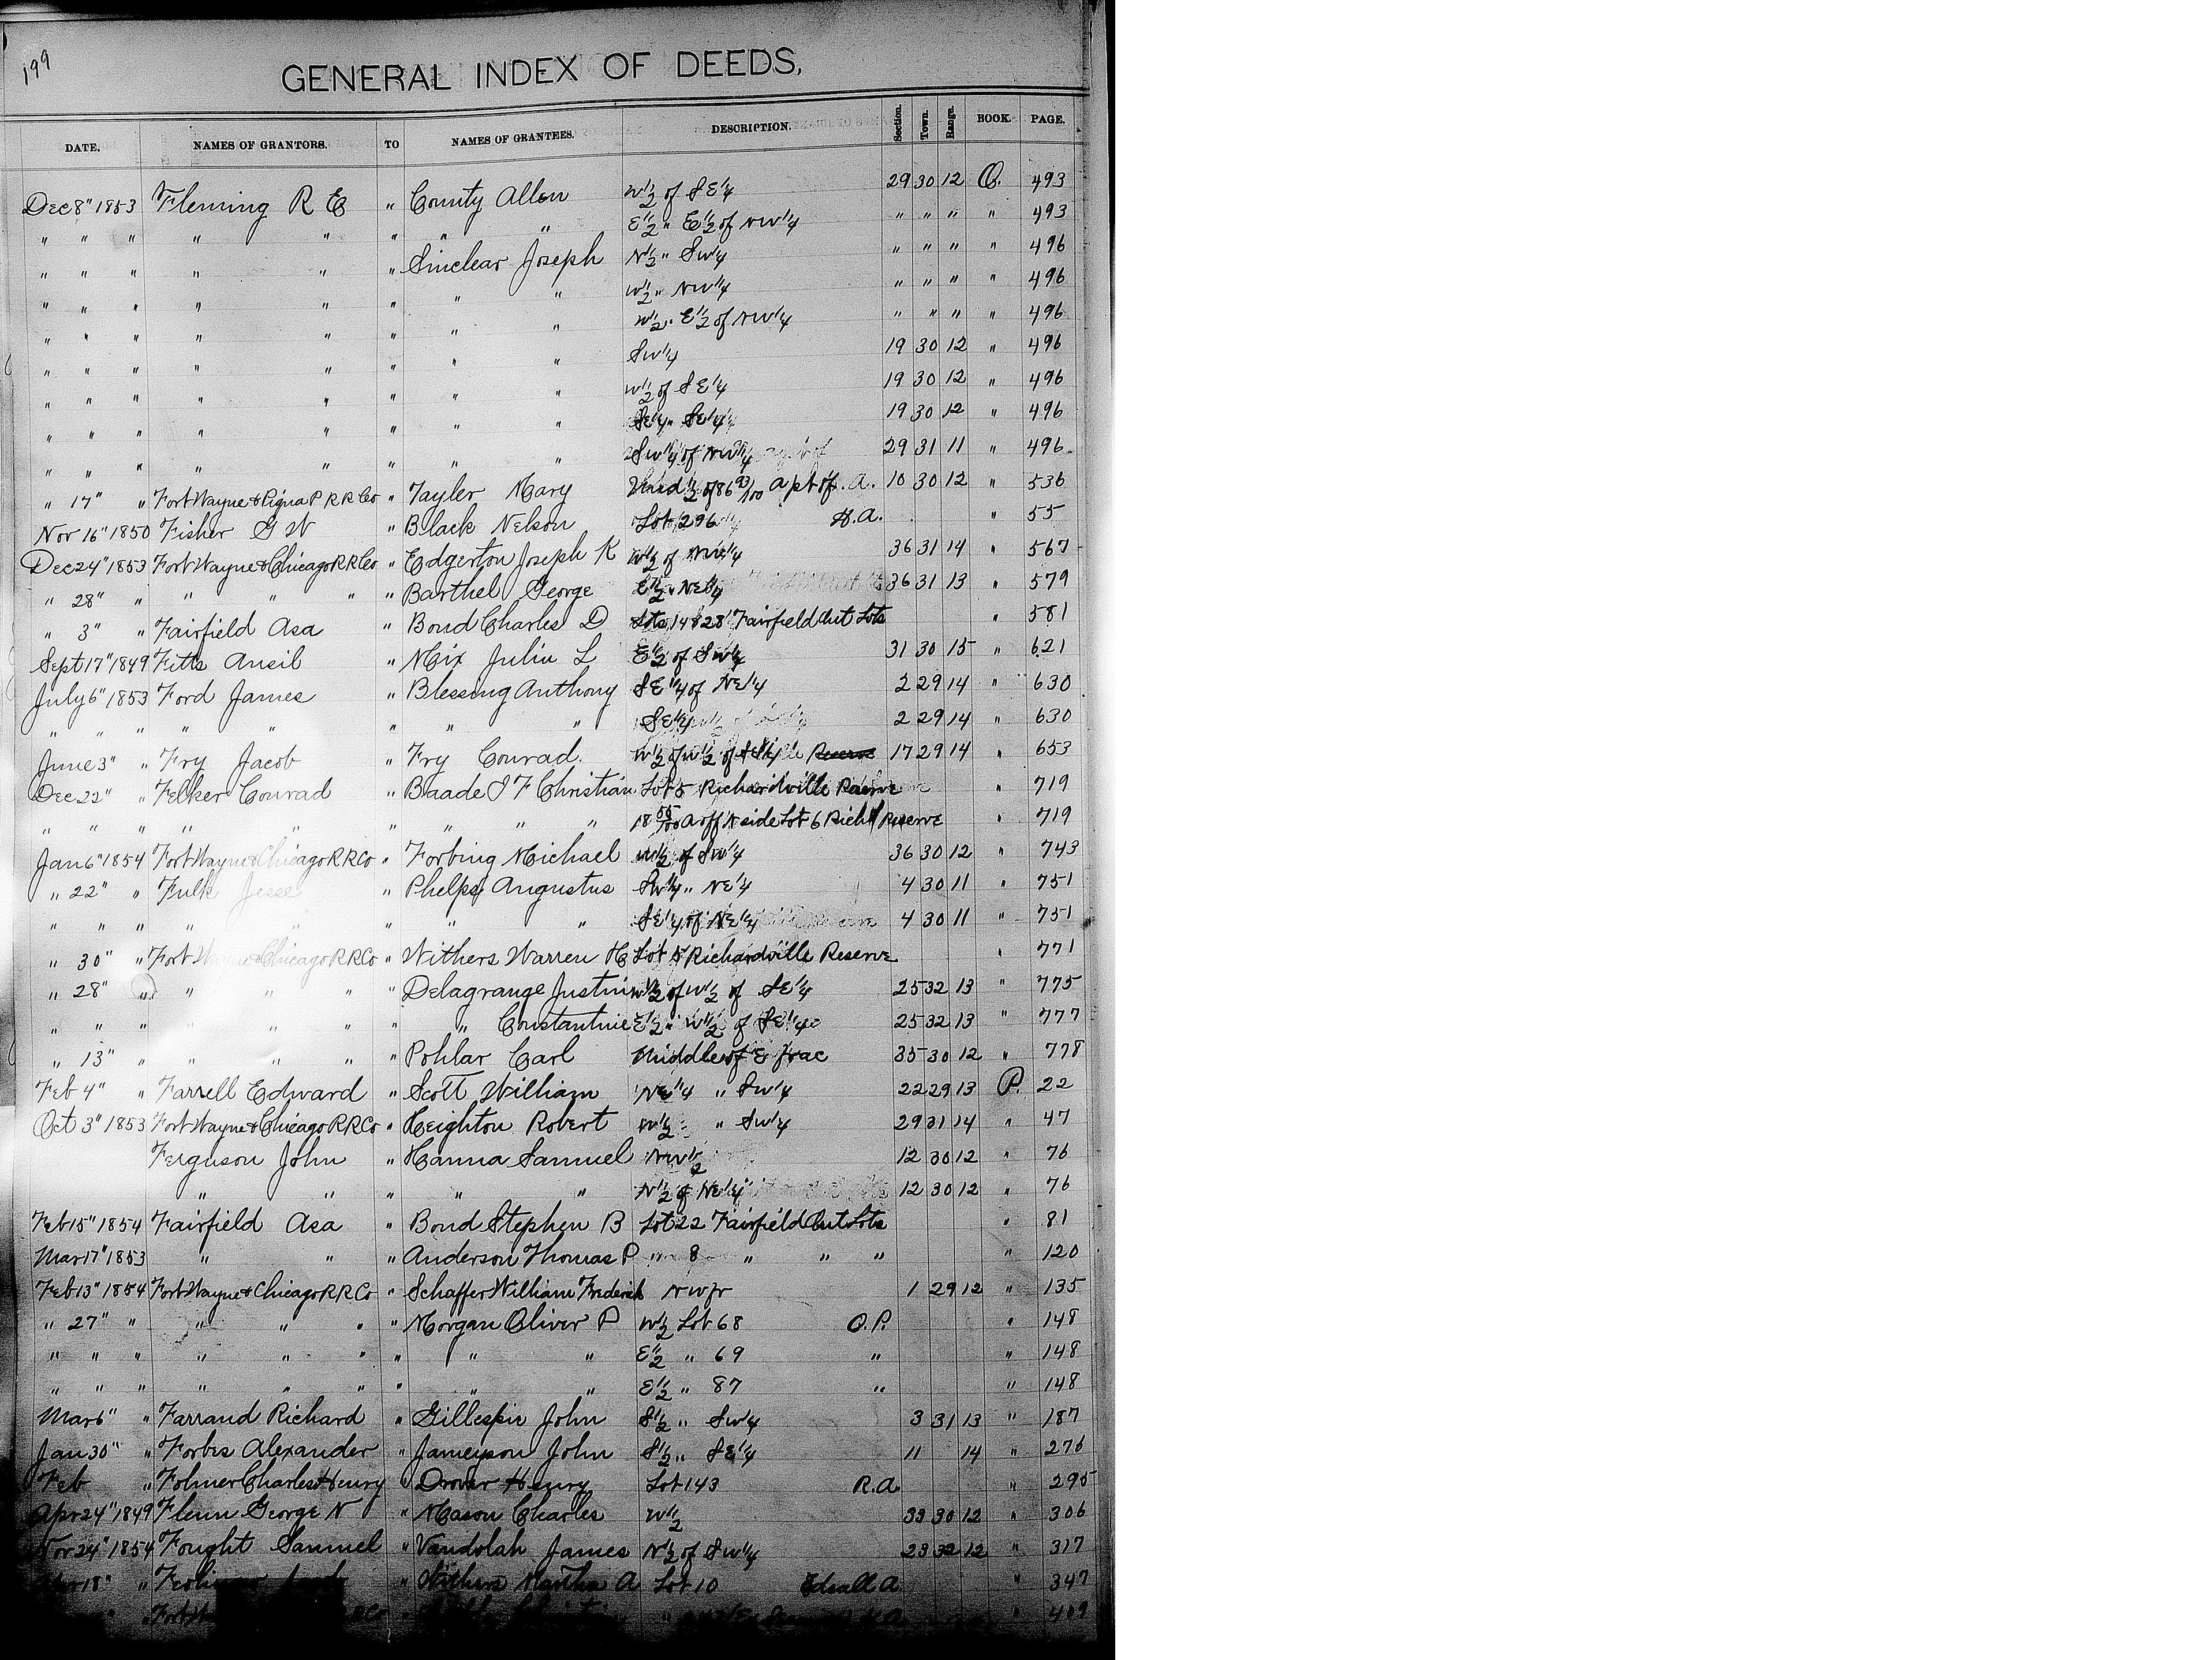 199
GENERAL INDEX OF DEEDS.
DATE. NAMES OF GRANTORS. TO NAMES OF GRANTEES. DESCRIPTION. Section. Town. Range. BOOK. PAGE.
Dec 8" 1853 Fleming R E " County Allen W 1/2 of SE 1/4 29 30 12 O. 493
" " " " " " " " E 1/2 " E 1/2 of NW 1/4 " " " " 493
" " " " " " Sinclear Joseph N 1/2 " SW 1/4 " " " " 496
" " " " " " " " W 1/2 " NW 1/4 " " " " 496
" " " " " " " " W 1/2 " E 1/2 of NW 1/4 " " " " 496
" " " " " " " " SW 1/4 19 30 12 " 496
" " " " " " " " W 1/2 of SE 1/4 19 30 12 " 496
" " " " " " " " SE 1/4 " SE 1/4 19 30 12 " 496
" " " " " " " " SW 1/4 of NW 1/4 29 31 11 " 496
" 17" " Fort Wayne & Piqua P R R Co " Tayler Mary Und 1/2 of 86 93/100 A pt of .A. 10 30 12 " 536
Nov 16" 1850 Fisher G W " Black Nelson Lot 296 H.A. " 55
Dec 24" 1853 Fort Wayne & Chicago R R Co " Edgerton Joseph K W 1/2 of 1/4 36 31 14 " 567
" 28" " " " " " Barthel George E 1/2 " NE 1/4 36 31 13 " 579
" 3" " Fairfield Asa " Bond Charles D Lots 14 & 28 Fairfield Out Lots " 581
Sept 17" 1849 Fitts Ansil " Mix Juliu L E 1/2 of SW 1/4 31 30 15 " 621
July 6" 1853 Ford James " Blessing Anthony SE 1/4 of NE 1/4 2 29 14 " 630
" " " " " " " " SE 1/4 2 29 14 " 630
June 3" " Fry Jacob " Fry Conrad. W 1/2 of W 1/2 of 1/4 Reserve 17 29 14 " 653
Dec 22" " Felker Conrad " Baade J F Christian Lot 5 Richardville Reserve " 719
" " " " " " " " " 18 55/100 A off N side Lot 6 Rich Reserve " 719
Jan 6" 1854 Fort Wayne & Chicago R R Co " Forbing Michael W 1/2 of SW 1/4 36 30 12 " 743
" 22" " Fulk Jesse " Phelps Augustus SW 1/4 " NE 1/4 4 30 11 " 751
" " " " " " " " SE 1/4 of NE 1/4 4 30 11 " 751
" 30" " Fort Wayne & Chicago R R Co " Withers Warren H Lot Richardville Reserve " 771
" 28" " " " " " Delagrange Justin W 1/2 of W 1/2 of SE 1/4 25 32 13 " 775
" " " " " " " " Constantine E 1/2 " W 1/2 of SE 1/4 25 32 13 " 777
" 13" " " " " " Pohlar Carl Middle of E frac 35 30 12 " 778
Feb 4" " Farrell Edward " Scott William NE 1/4 " SW 1/4 22 29 13 P. 22
Oct 3" 1853 Fort Wayne & Chicago R R Co " Heighton Robert W 1/2 " SW 1/4 29 31 14 " 47
Ferguson John " Hanna Samuel NW 1/2 12 30 12 " 76
" " " " " N 1/2 of NE 1/4 12 30 12 " 76
Feb 15" 1854 Fairfield Asa " Bond Stephen B Lot 22 Fairfield Out Lots " 81
Mar 17" 1853 " " " Anderson Thomas P " 8 " " " " 120
Feb 13" 1854 Fort Wayne & Chicago R R Co " Schaffer William Frederick N W fr 1 29 12 " 135
" 27" " " " " " Morgan Oliver P W 1/2 Lot 68 O.P. " 148
" " " " " " " " " E 1/2 " 69 " " 148
" " " " " " " " " E 1/2 " 87 " " 148
Mar 6" " Farrand Richard " Gillespie John S 1/2 " SW 1/4 3 31 13 " 187
Jan 30" " Forbes Alexander " Jameyson John S 1/2 " SE 1/4 11 14 " 276
Feb " Folmer Charles Henry " Drover Henry Lot 143 R.A. " 295
Apr 24" 1849 Flenn George N " Mason Charles W 1/2 33 30 12 " 306
Nov 24" 1854 Fought Samuel " Vandolah James N 1/2 of SW 1/4 23 32 12 " 317
18" " " Withers Martha A Lot 10 Edsall A " 347
Fort R Co " " 409